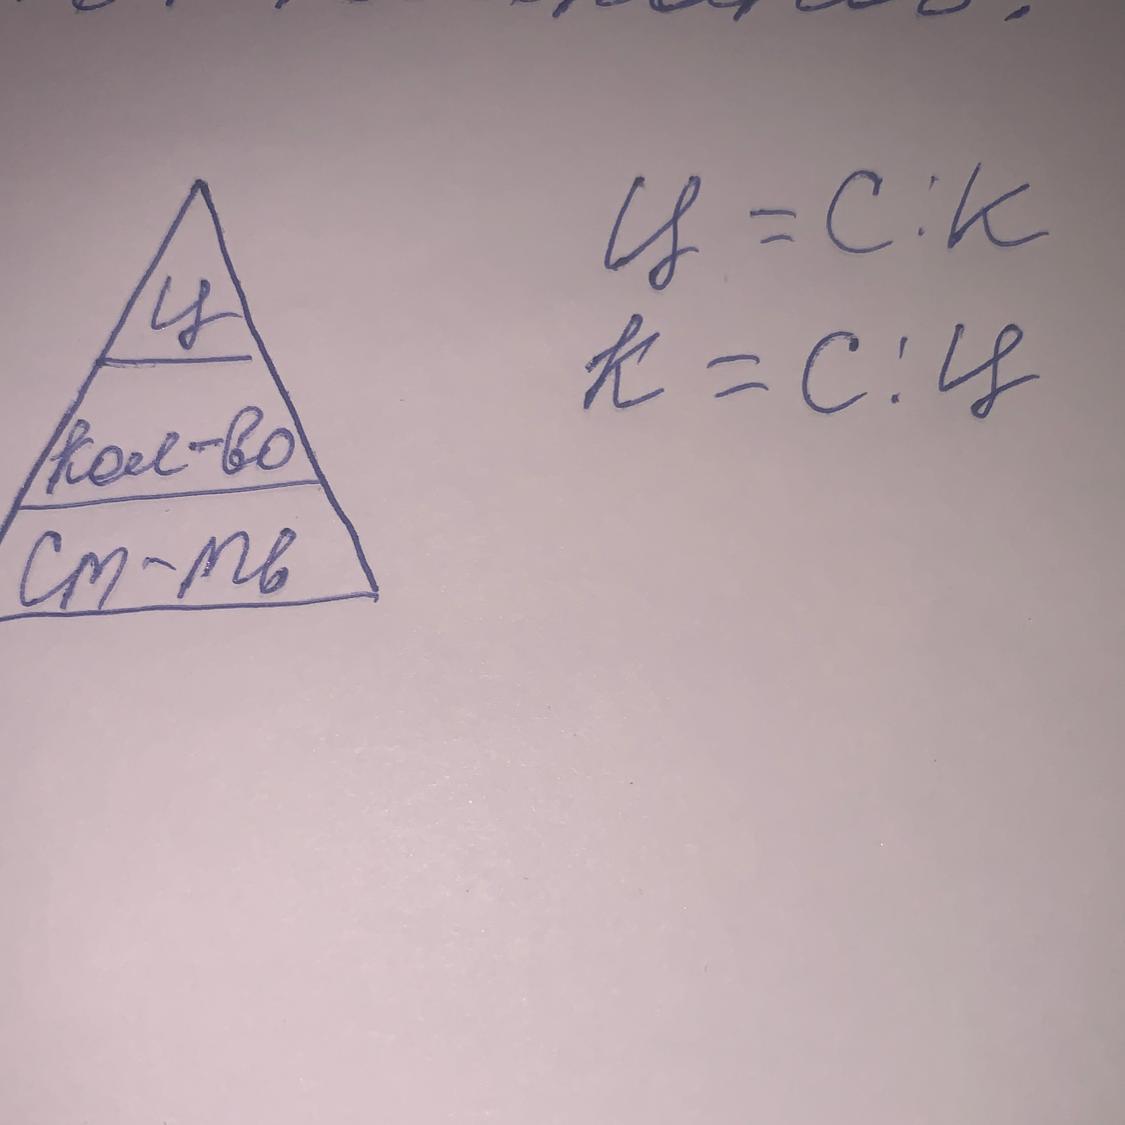 Ц = С : К
К = С : Ц
Ц
кол-во
Ст-ть